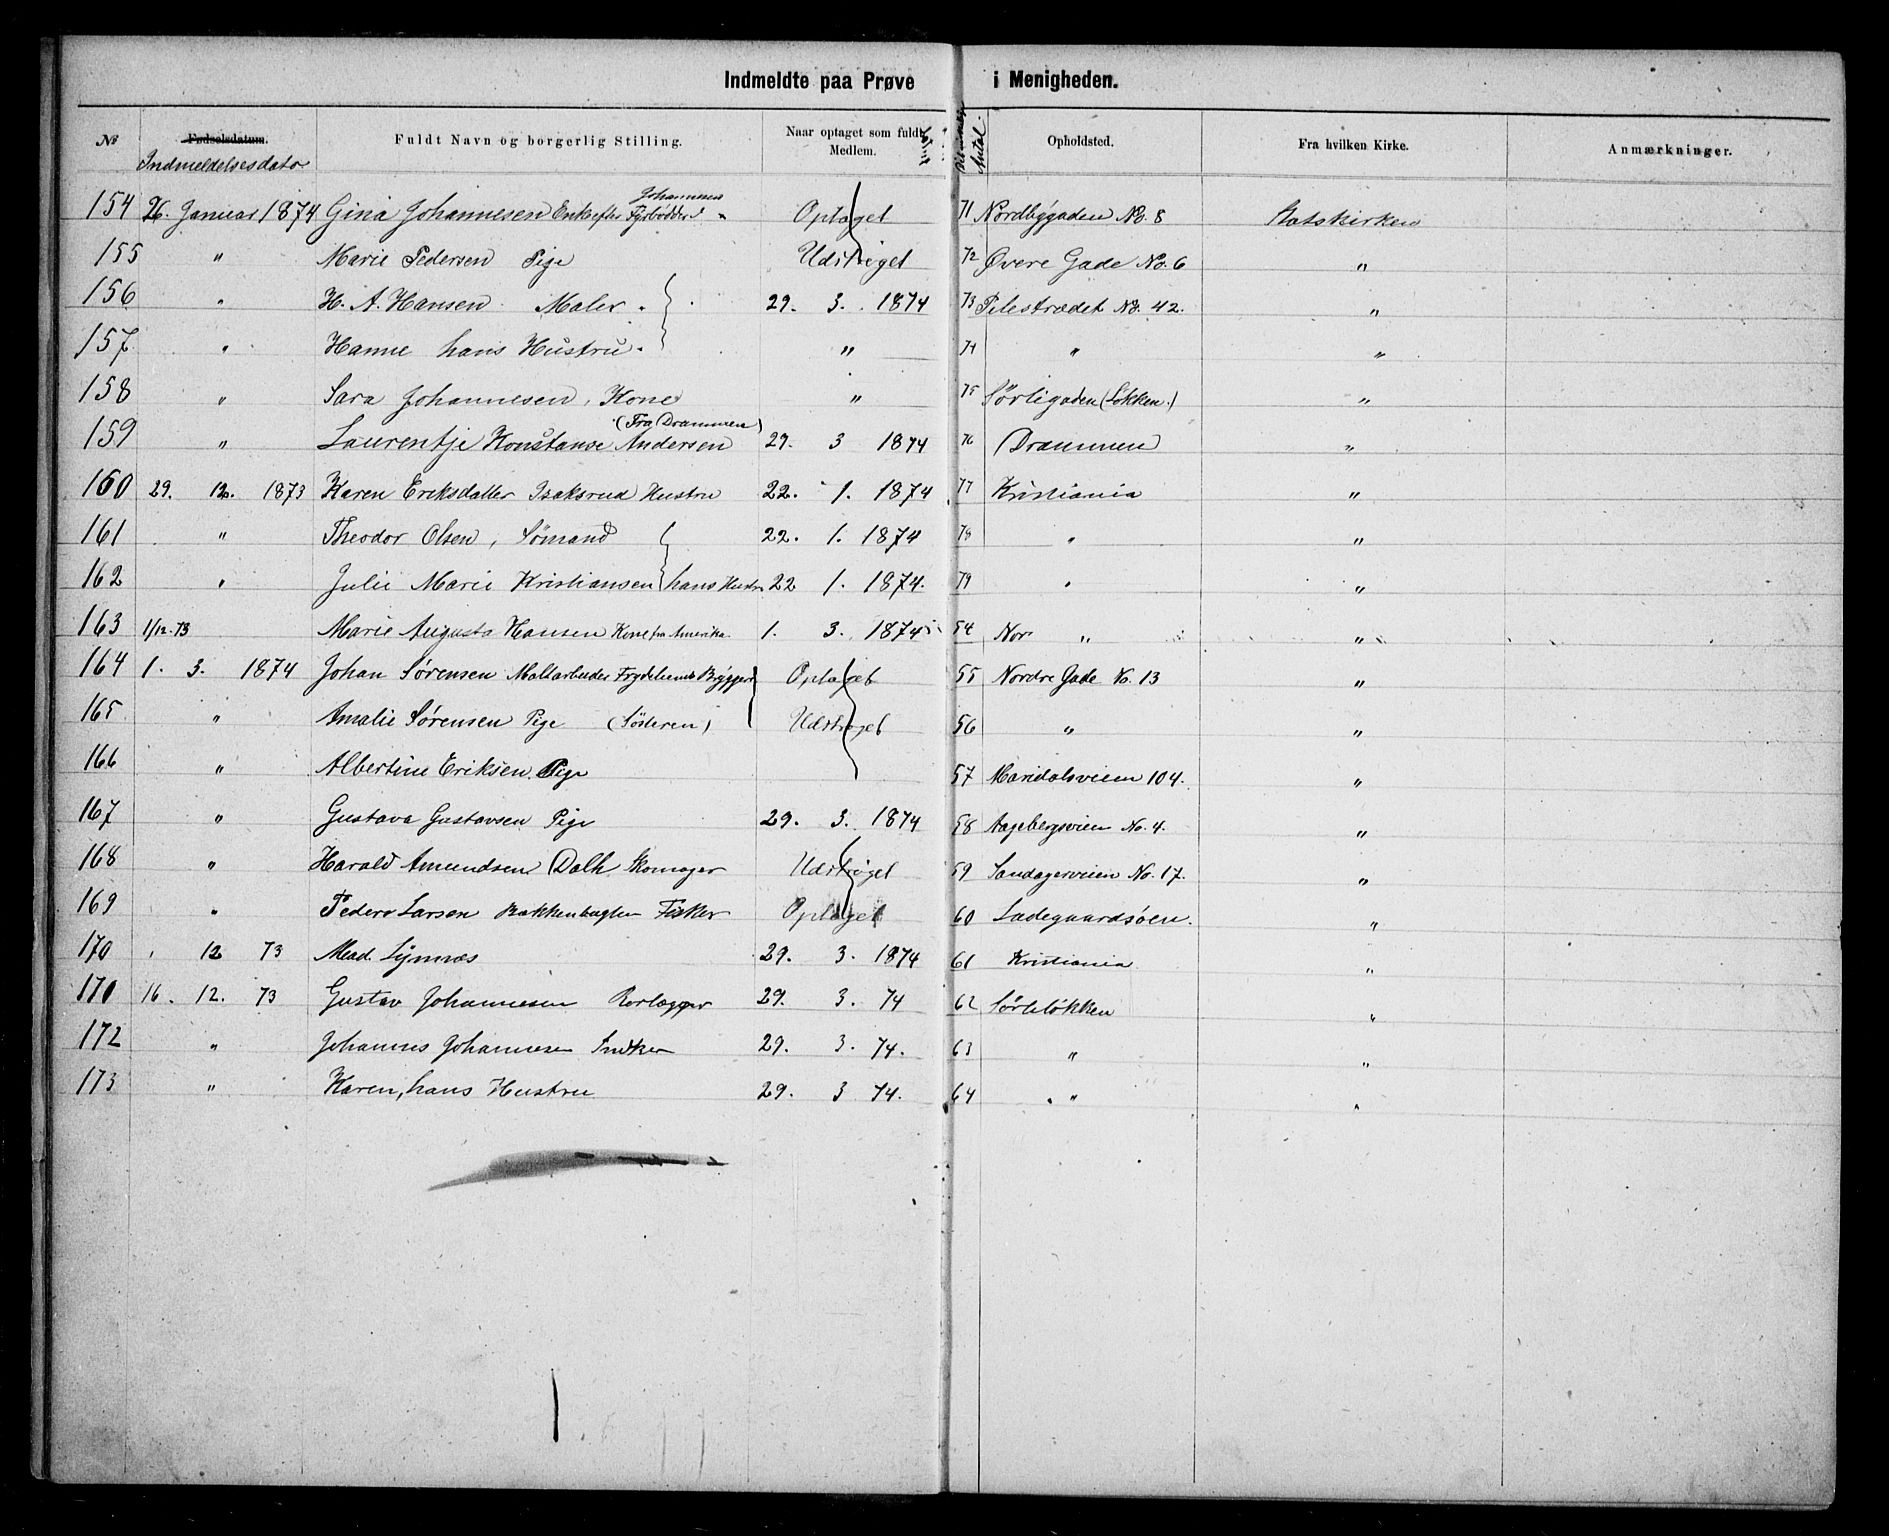 Indmeldte paa Prøve i Menigheden.
No Fødselsdatum. Fuldt Navn og borgerlig Stilling. Naar optaget som fuldt Medlem. Antal. Opholdsted. Fra hvilken Kirke. Anmærkninger.
Indmeldelsesdato
Johannesen
154 26. Januar 1874 Gina Johannesen Enke efter Fyrbødder J " Optaget 71 Nordbygaden No. 8 Statskirken
155 " Marie Pedersen Pige Udstrøget 72 Øvere Gade No. 6 "
156 " H. A. Hansen. Maler. 29. 3. 1874 73 Pilestrædet No. 42. "
157 " Hanne hans Hustru. " 74 " "
158 " Sara Johannesen, Kone " 75 Sørligaden (Løkken.) "
(Fra Drammen)
159 " Laurentje Konstanse Andersen 29. 3 1874 76 Drammen "
160 29. 12. 1873 Karen Eriksdatter Isaksrud Hustru 22. 1. 1874 77 Kristiania "
161 " Theodor Olsen, Sømand 22. 1. 1874 78 " "
162 " Julie Marie Kristiansen hans Hustru 22 1. 1874. 79 " "
163 1/12. 73 Marie Augusta Hansen Kone fra Amerika. 1. 3. 1874 54 Nor " "
164 1. 3. 1874 Johan Sørensen Maltarbeider Frydenlunds Byggeri Optaget 55 Nordre Gade No. 13 "
165 " Amalie Sørensen Pige (Søsteren) Udstrøget 56 " "
166 " Albertine Eriksen. Pige 57 Maridalsveien 104. "
167 " Gustava Gustavsen Pige 29. 3. 1874 58 Aagebergsveien No. 4. "
168 " Harald Amundsen Dalh Skomager Udstrøget 59 Sandagerveien No. 17. "
169 " Peder Larsen Bakkenhagten Fisker Optaget 60 Ladegaardsøen. "
170 " 12 73 Mad. Lymnæs 29. 3. 1874 61 Kristiania "
170 16. 12. 73 Gustav Johannesen Rørlægger 29. 3. 74 62 Sørliløkken "
172 " Johannes Johannesen Snedker 29. 3. 74. 63 " "
173 " Karen, hans Hustru 29. 3 74. 64 " "